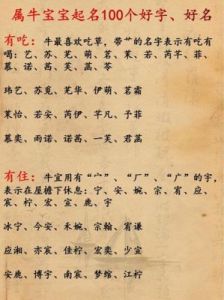 属牛宝宝起名100个好字、好名
有吃：牛最喜欢吃草，带艹的名字表示有吃有
喝：艺、苏、芜、萌、茗、茉、若、芮、芊、菲、
蔓、诺、茜、芙、蕊、苓
玮艺、苏觅、芜伊、萌、茗霜
茉怡、若安、芮伊、芊凡、予菲
慕奕、雨诺、诺茜、一芙、君蕊
有住：牛宜用有“宀”、“厂”、“广”的字，
表示在屋檐下休息：宁、安、婉、宗、宥、应、
宸、柠、宏、宜、鹿、宇
冰宁、今安、禾婉、宗翰、宥谦
应湘、亦宸、佳柠、宏奕、少宜
安鹿、博宇、南宸、梦绾、江柠